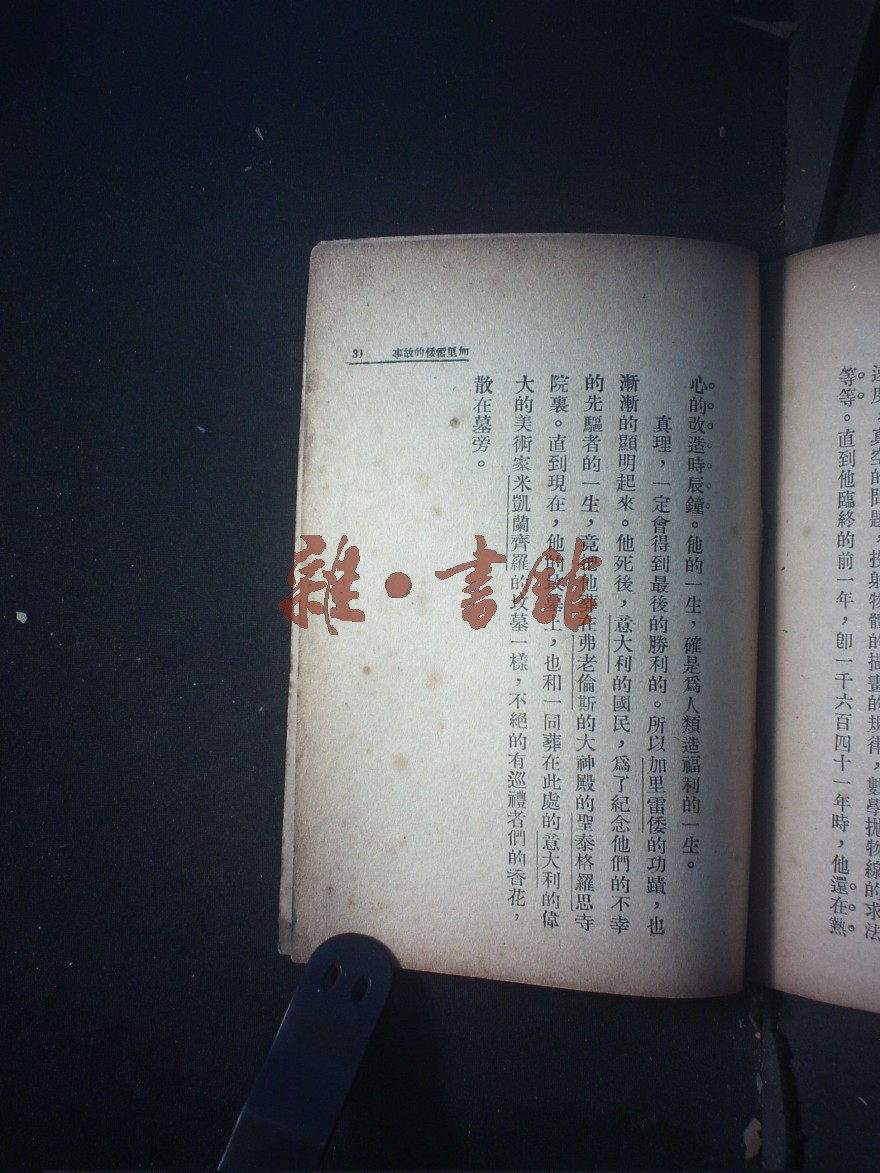 速度，真空的問題，投射物體的描畫的規律，數學抛物線的求法
等等。直到他臨終的前一年，卽一千六百四十一年時，他還在熱
心的改造時辰鐘。他的一生，確是爲人類造福利的一生。
真理，一定會得到最後的勝利的。所以加里雷倭的功蹟，也
漸漸的顯明起來。他死後，意大利的國民，爲了紀念他們的不幸
的先驅者的一生，竟把他葬在弗老倫斯的大神殿的聖泰格羅思寺
院裏。直到現在，他的坟墓上，也和一同葬在此處的意大利的偉
大的美術家米凱蘭齊羅的坟墓一樣，不絕的有巡禮者們的香花，
散在墓旁。
加里雷倭的故事 31
雜·書館